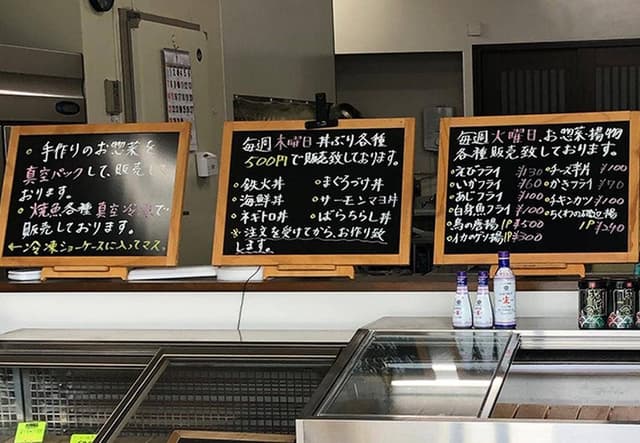 。手作りのお惣菜を
真空パックして、販売して
おります。
。焼魚各種真空冷凍で
販売しております。
←冷凍ショーケースに入ってマス。
毎週木曜日丼ぶり各種
500円で販売致しております。
。鉄火丼 。まぐろづけ丼
。海鮮丼 。サーモンマヨ丼
。ネギトロ丼 。ばらちらし丼
※注文を受けてから、お作り致
します。
毎週火曜日、お惣菜・揚物
各種販売致しております。
。えびフライ ¥130 。チーズ半片 ¥100
。いかフライ ¥60 。かきフライ ¥70
。あじフライ ¥100 。チキンカツ ¥100
。白身魚フライ ¥100 。ちくわの磯辺揚
。鳥の唐揚 1P ¥500 1P ¥240
。イカのゲソ揚 1P ¥300